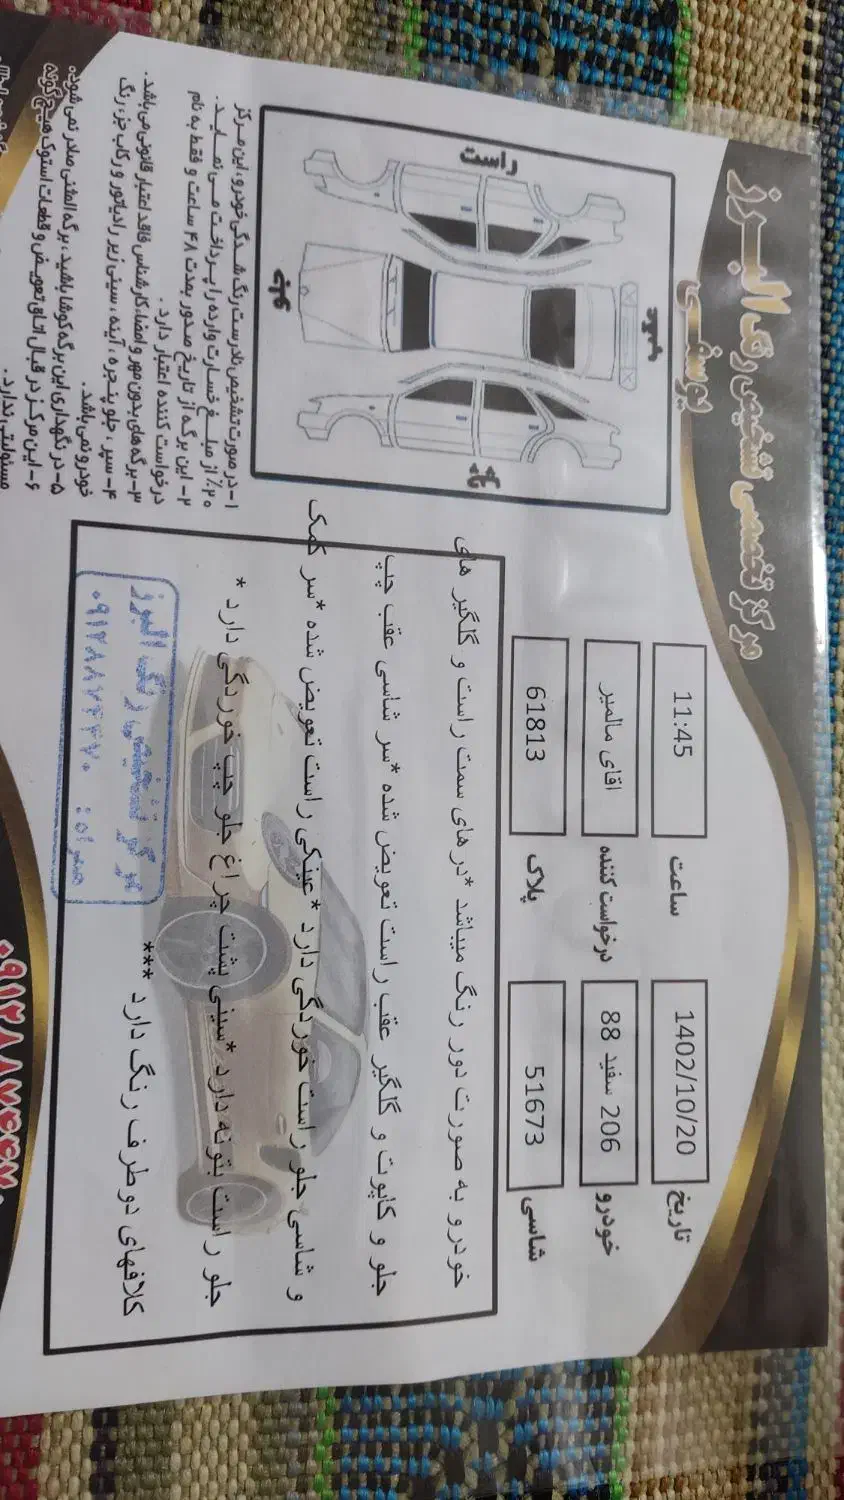 مرکز تخصصی تشخیص رنگ البرز
یوسفی
تاریخ 1402/10/20 ساعت 11:45
خودرو 206 سفید 88 درخواست کننده اقای مالمیر
شاسی 51673 پلاک 61813
راست
عقب
چپ
خودرو به صورت دور رنگ میباشد *درهای سمت راست و گلگیر های
جلو و کاپوت و گلگیر عقب راست تعویض شده *سر شاسی عقب چپ
و شاسی جلو راست خوردگی دارد *عینکی راست تعویض شده *سر کمک
جلو راست بتونه دارد *سینی پشت چراغ جلو چپ خوردگی دارد *
کلافهای دو طرف رنگ دارد ***
مرکز تشخیص رنگ البرز
همراه:
۱- در صورت تشخیص نادرست رنگ شدگی خودرو، این مرکز
۲۰٪ از مبلغ خسارت وارده را پرداخت می نماید.
۲- این برگه از تاریخ صدور بمدت ۴۸ ساعت و فقط به نام
درخواست کننده اعتبار دارد.
۳- برگه های بدون مهر و امضاء کارشناس فاقد اعتبار قانونی می باشد.
۴- سپر، جلو پنجره، آینه، سینی زیر رادیاتور و رکاب جزء رنگ
خودرو نمی باشد.
۵- در نگهداری این برگه کوشا باشید، برگه المثنی صادر نمی شود.
۶- این مرکز در قبال اتاق تعویض و قطعات استوک هیچ گونه
مسئولیتی ندارد.